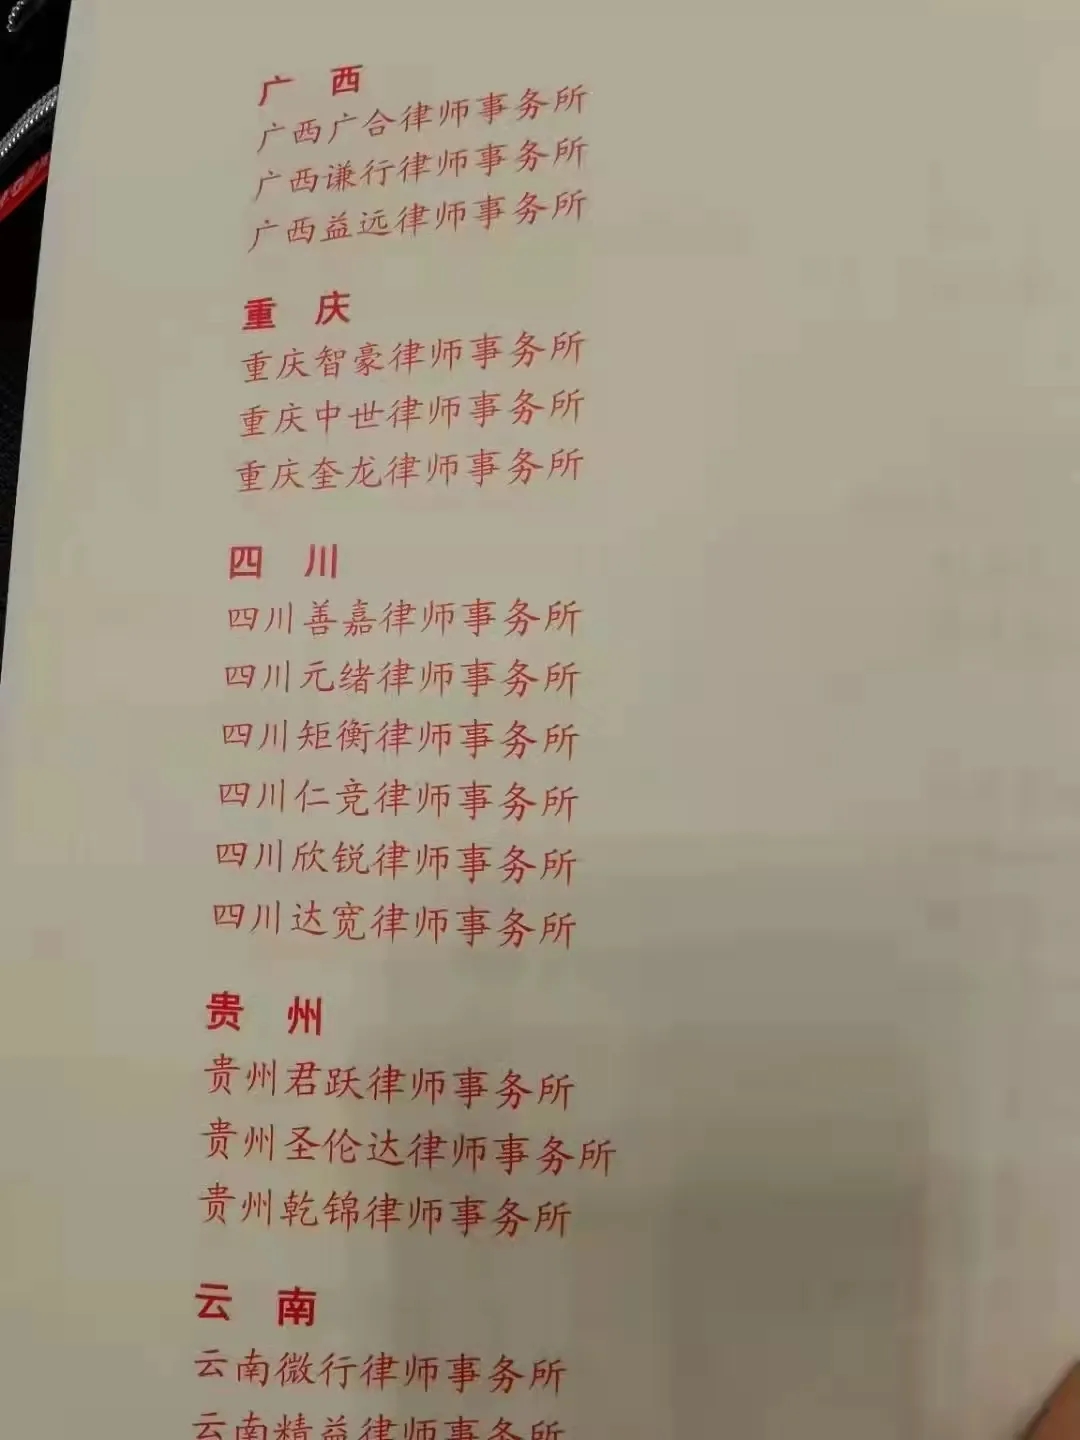 广 西
广西广合律师事务所
广西谦行律师事务所
广西益远律师事务所
重 庆
重庆智豪律师事务所
重庆中世律师事务所
重庆奎龙律师事务所
四 川
四川善嘉律师事务所
四川元绪律师事务所
四川矩衡律师事务所
四川仁竞律师事务所
四川欣锐律师事务所
四川达宽律师事务所
贵 州
贵州君跃律师事务所
贵州圣伦达律师事务所
贵州乾锦律师事务所
云 南
云南微行律师事务所
云南精益律师事务所